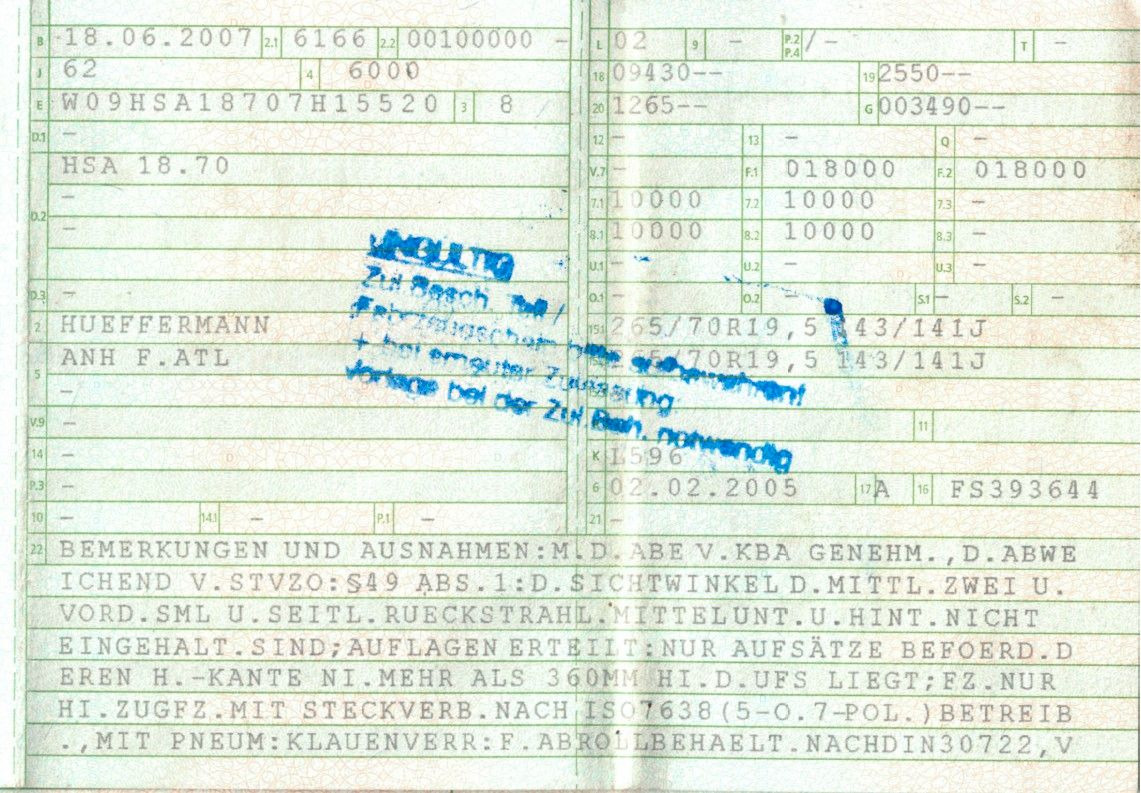 B 18.06.2007 2.1 6166 2.2 00100000 -
J 62 4 6000
E W09HSA18707H15520 3 8
D.1 -
HSA 18.70
-
D.2 -
D.3 -
2 HUEFFERMANN
ANH F.ATL
5 -
V.9 -
14 -
P.3 -
10 - 14.1 - P.1 -
L 02 9 - P.2 P.4 /- T -
18 09430-- 19 2550--
20 1265-- G 003490--
12 - 13 - Q -
V.7 - F.1 018000 F.2 018000
7.1 10000 7.2 10000 7.3 -
8.1 10000 8.2 10000 8.3 -
U.1 - U.2 - U.3 -
O.1 - O.2 - S.1 - S.2 -
15.1 265/70R19,5 143/141J
265/70R19,5 143/141J
11
K L596
6 02.02.2005 17 A 16 FS393644
21 -
UNGÜLTIG
Zul.Besch. Teil I
Fahrzeugschein bitte aufbewahren!
+ bei erneuter Zulassung
Vorlage bei der Zul.Beh. notwendig
22 BEMERKUNGEN UND AUSNAHMEN:M.D.ABE V.KBA GENEHM.,D.ABWE
ICHEND V.STVZO:§49 ABS.1:D.SICHTWINKEL D.MITTL.ZWEI U.
VORD.SML U.SEITL.RUECKSTRAHL.MITTELUNT.U.HINT.NICHT
EINGEHALT.SIND;AUFLAGEN ERTEILT:NUR AUFSÄTZE BEFOERD.D
EREN H.-KANTE NI.MEHR ALS 360MM HI.D.UFS LIEGT;FZ.NUR
HI.ZUGFZ.MIT STECKVERB.NACH ISO7638(5-O.7-POL.)BETREIB
.,MIT PNEUM:KLAUENVERR:F.ABROLLBEHAELT.NACHDIN30722,V